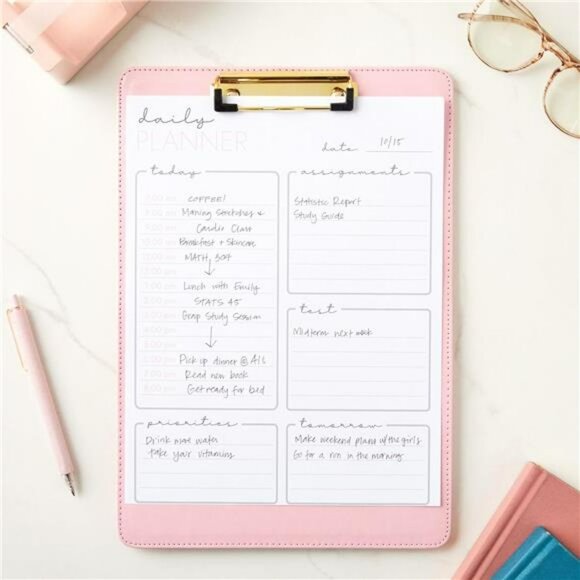 daily
PLANNER
date 10/15
today
7:00 am COFFEE!
8:00 am Morning Stretches &
9:00 am Cardio Class
10:00 am Breakfast + Skincare
11:00 am MATH 304
12:00 pm
1:00 pm Lunch with Emily
2:00 pm STATS 45
3:00 pm Group Study Session
4:00 pm
5:00 pm
6:00 pm Pick up dinner @ Al's
7:00 pm Read new book
8:00 pm Get ready for bed
assignments
Statistic Report
Study Guide
test
Midterm next week
priorities
Drink more water
Take your vitamins
tomorrow
Make weekend plans w/the girls
Go for a run in the morning